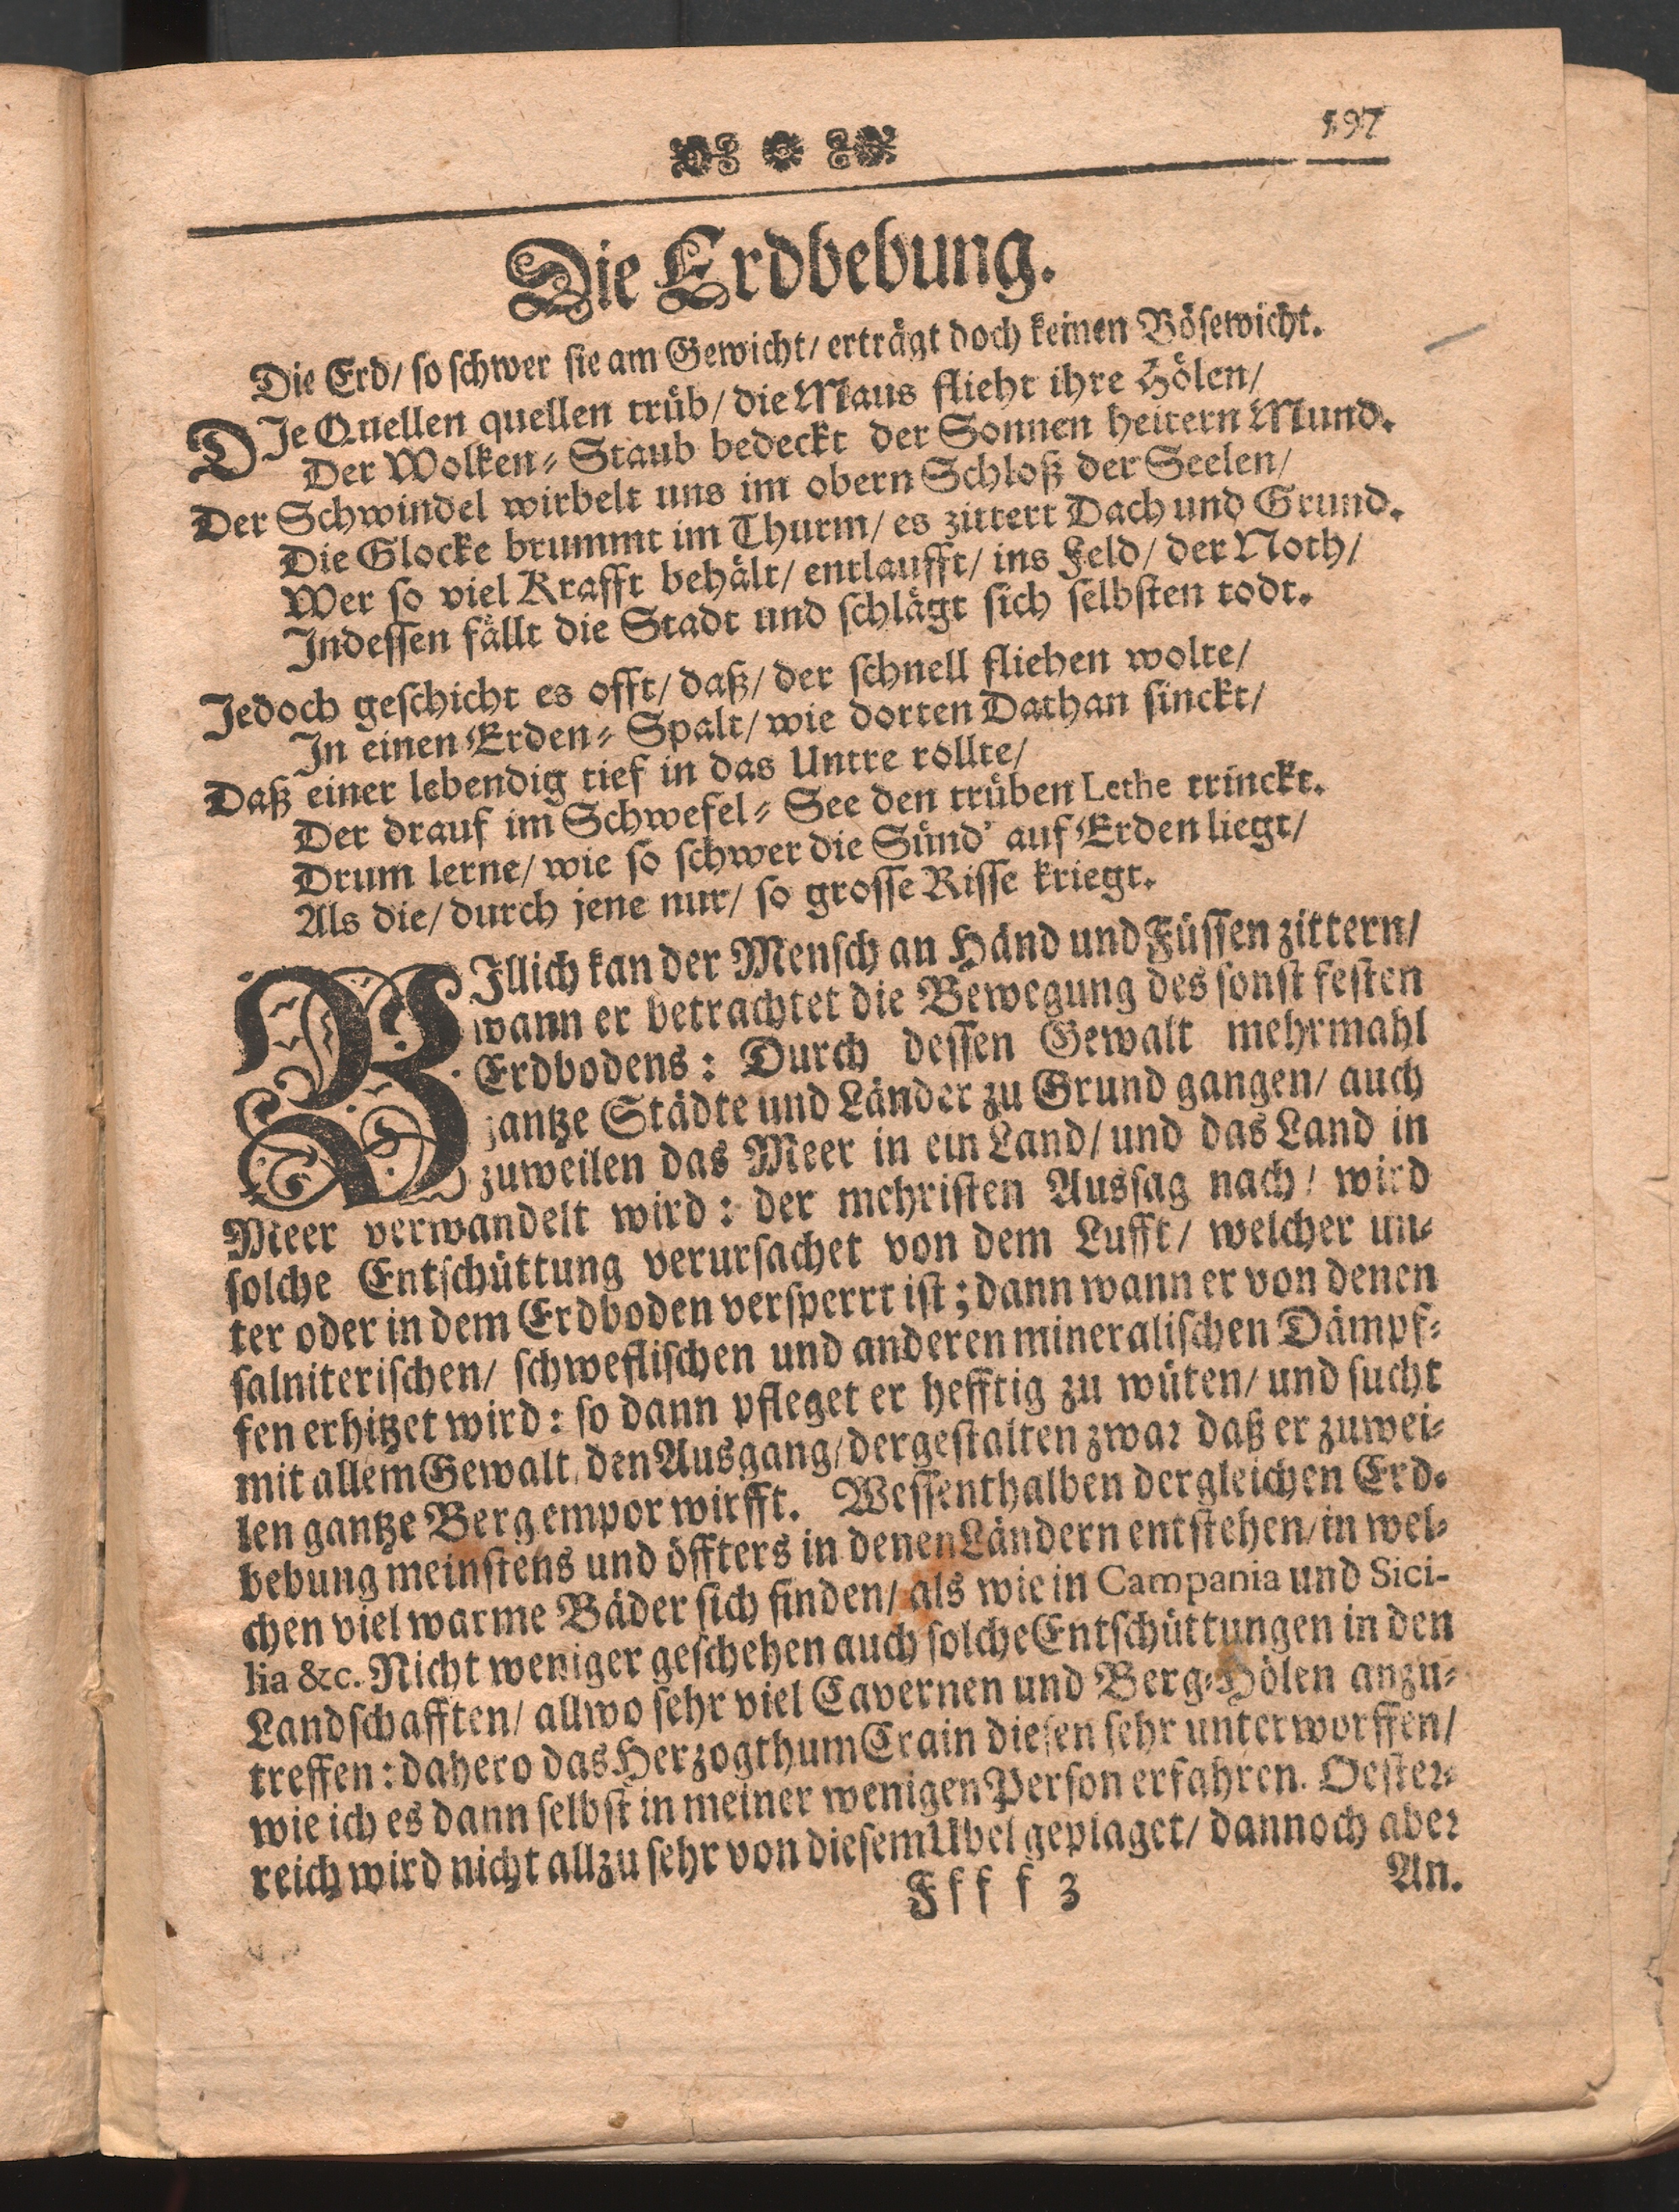 597
Die Erdbebung.
Die Erd/ so schwer sie am Gewicht/ erträgt doch keinen Bösewicht.
DIe Quellen quellen trüb/ die Maus flieht ihre Hölen/
Der Wolken-Staub bedeckt der Sonnen heitern Mund.
Der Schwindel wirbelt uns im obern Schloß der Seelen/
Die Glocke brummt im Thurm/ es zittert Dach und Grund.
Wer so viel Krafft behält/ entlaufft/ ins Feld/ der Noth/
Indessen fällt die Stadt und schlägt sich selbsten todt.
Jedoch geschicht es offt/ daß/ der schnell fliehen wolte/
In einen Erden-Spalt/ wie dorten Dathan sinckt/
Daß einer lebendig tief in das Untre rollte/
Der drauf im Schwefel-See den trüben Lethe trinckt.
Drum lerne/ wie so schwer die Sünd' auf Erden liegt/
Als die/ durch jene nur/ so grosse Risse kriegt.
BIllich kan der Mensch an Händ und Füssen zittern/
wann er betrachtet die Bewegung des sonst festen
Erdbodens: Durch dessen Gewalt mehrmahl
gantze Städte und Länder zu Grund gangen/ auch
zuweilen das Meer in ein Land/ und das Land in
Meer verwandelt wird: der mehristen Aussag nach/ wird
solche Entschüttung verursachet von dem Lufft/ welcher un-
ter oder in dem Erdboden versperrt ist; dann wann er von denen
salniterischen/ schweflischen und anderen mineralischen Dämpf-
fen erhitzet wird: so dann pfleget er hefftig zu wüten/ und sucht
mit allem Gewalt den Ausgang/ dergestalten zwar daß er zuwei-
len gantze Berg empor wirfft. Wessenthalben dergleichen Erd-
bebung meinstens und öffters in denen Ländern entstehen/ in wel-
chen viel warme Bäder sich finden/ als wie in Campania und Sici-
lia &c. Nicht weniger geschehen auch solche Entschüttungen in den
Landschafften/ allwo sehr viel Cavernen und Berg-Hölen anzu-
treffen: dahero das Herzogthum Crain diesen sehr unterworffen/
wie ich es dann selbst in meiner wenigen Person erfahren. Oester-
reich wird nicht allzu sehr von diesem Ubel geplaget/ dannoch aber
Ffff 3 An.